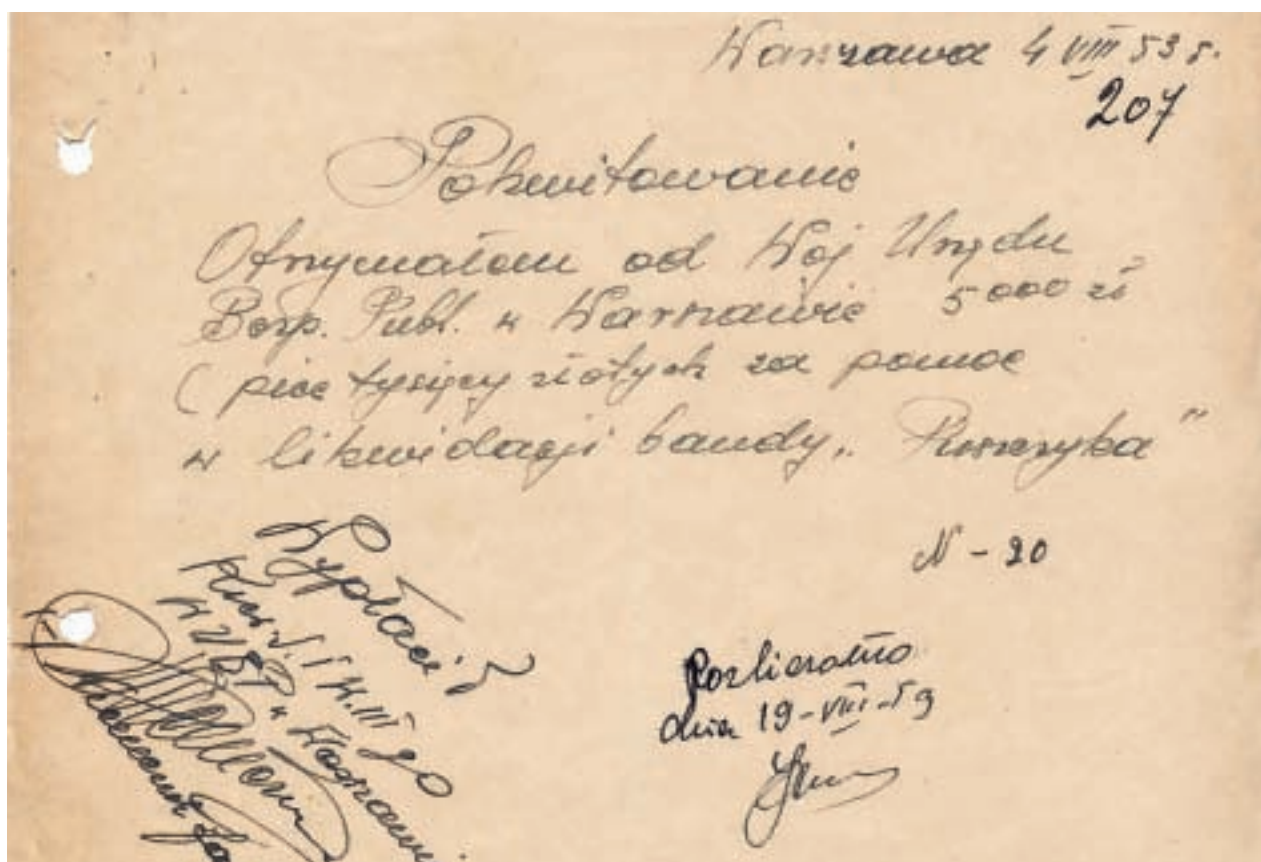 Warszawa 4 VIII 53 r.
207
Pokwitowanie
Otrzymałem od Woj Urzędu
Bezp. Publ. w Warszawie 5000 zł
( pięc tysięcy złotych za pomoc
w likwidacji bandy „Puszczyka”
N - 20
Wypłacił
Kier. S. I W. III go
WUBP w Warszawie
Rozliczono
dnia 19-VIII-53